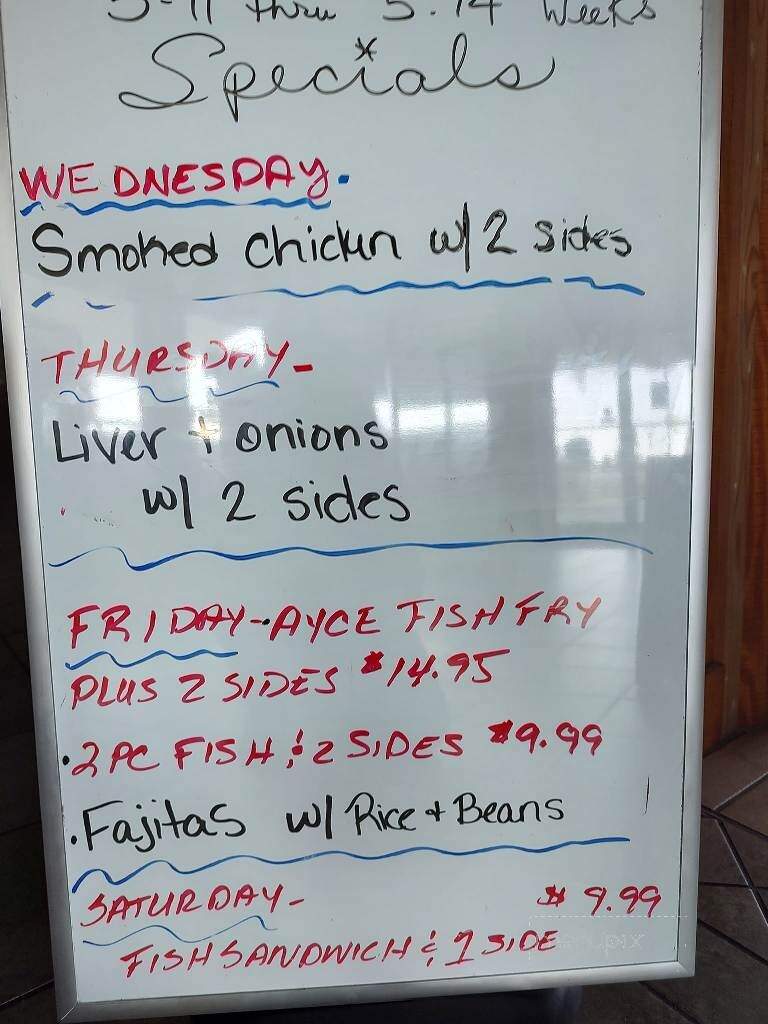 5-11 thru 5-14 Weeks
Specials
WEDNESDAY-
Smoked Chicken w/ 2 sides
THURSDAY-
Liver + onions
w/ 2 sides
FRIDAY-AYCE FISH FRY
PLUS 2 SIDES $14.95
•2 PC FISH & 2 SIDES $9.99
•Fajitas w/ Rice + Beans
SATURDAY- $9.99
FISH SANDWICH & 1 SIDE